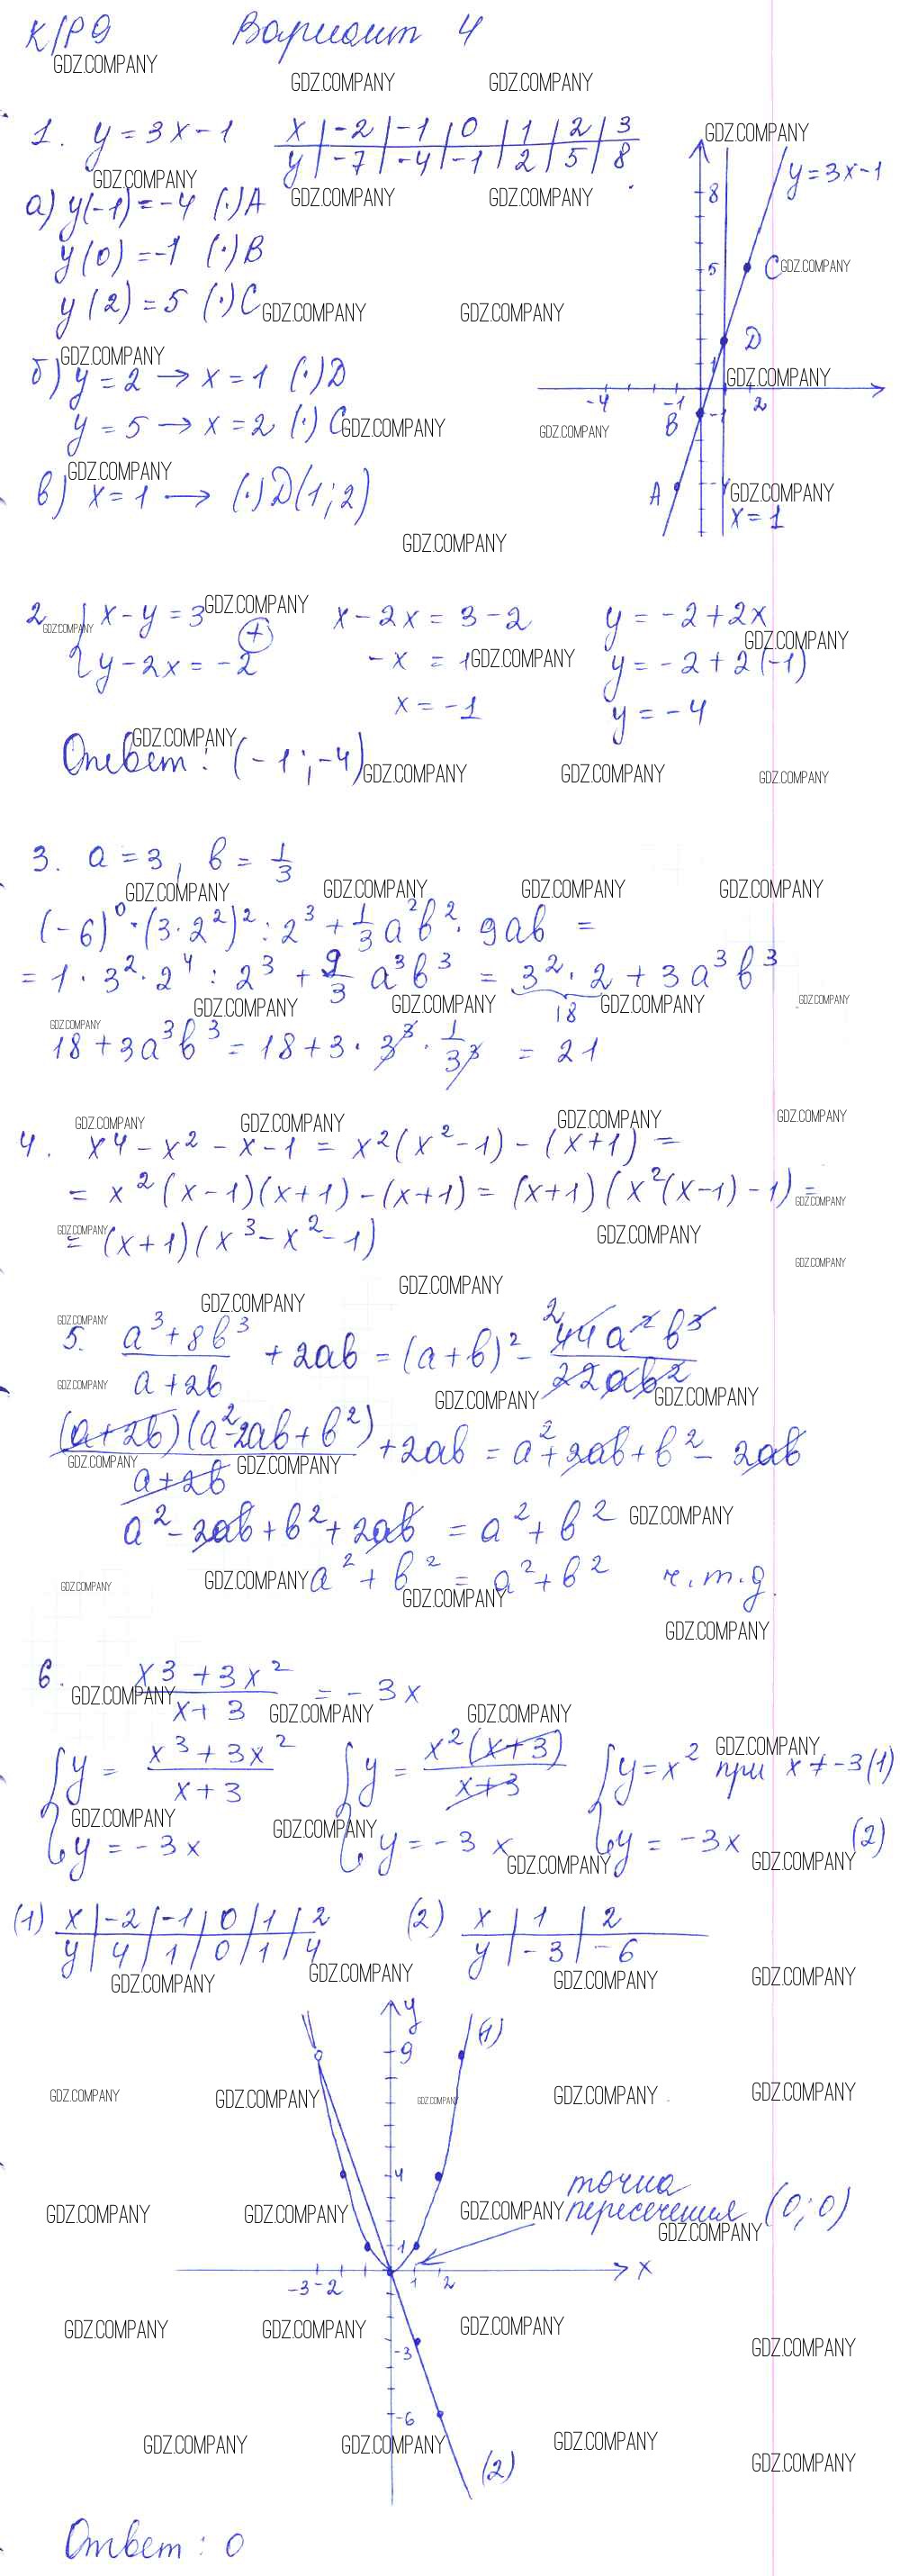 К/Р 9 Вариант 4
1. y = 3x - 1
x | -2 | -1 | 0 | 1 | 2 | 3
y | -7 | -4 | -1 | 2 | 5 | 8
а) y(-1) = -4 (·)A
y(0) = -1 (·)B
y(2) = 5 (·)C
б) y = 2 → x = 1 (·)D
y = 5 → x = 2 (·)C
в) x = 1 → (·)D(1; 2)
y = 3x - 1
8
5 C
D
1
-4 -1 2
B -1
A
x = 1
2. { x - y = 3 x - 2x = 3 - 2 y = -2 + 2x
{ y - 2x = -2 (+) -x = 1 y = -2 + 2(-1)
x = -1 y = -4
Ответ: (-1; -4)
3. a = 3, b = 1/3
(-6)^0 · (3·2^2)^2 : 2^3 + 1/3 a^2b^2 · 9ab =
= 1 · 3^2 · 2^4 : 2^3 + 9/3 a^3b^3 = 3^2 · 2 + 3a^3b^3
18
18 + 3a^3b^3 = 18 + 3 · 3^3 · 1/3^3 = 21
4. x^4 - x^2 - x - 1 = x^2(x^2 - 1) - (x + 1) =
= x^2(x - 1)(x + 1) - (x + 1) = (x + 1)(x^2(x - 1) - 1) =
= (x + 1)(x^3 - x^2 - 1)
5. (a^3 + 8b^3)/(a + 2b) + 2ab = (a + b)^2 - 2 44a^2b^3/22ab^2
(a + 2b)(a^2 - 2ab + b^2)/(a + 2b) + 2ab = a^2 + 2ab + b^2 - 2ab
a^2 - 2ab + b^2 + 2ab = a^2 + b^2
a^2 + b^2 = a^2 + b^2 ч.т.д.
6. (x^3 + 3x^2)/(x + 3) = -3x
{ y = (x^3 + 3x^2)/(x + 3) { y = x^2(x + 3)/(x + 3) { y = x^2 при x ≠ -3 (1)
{ y = -3x { y = -3x { y = -3x (2)
(1) x | -2 | -1 | 0 | 1 | 2 (2) x | 1 | 2
y | 4 | 1 | 0 | 1 | 4 y | -3 | -6
y
9 (1)
4
точка
пересечения (0; 0)
1
-3 -2 1 2 x
-3
-6
(2)
Ответ: 0
GDZ.COMPANY